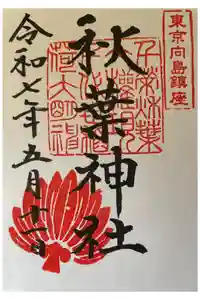 東京向島鎮座
秋葉神社
令和七年五月十一日